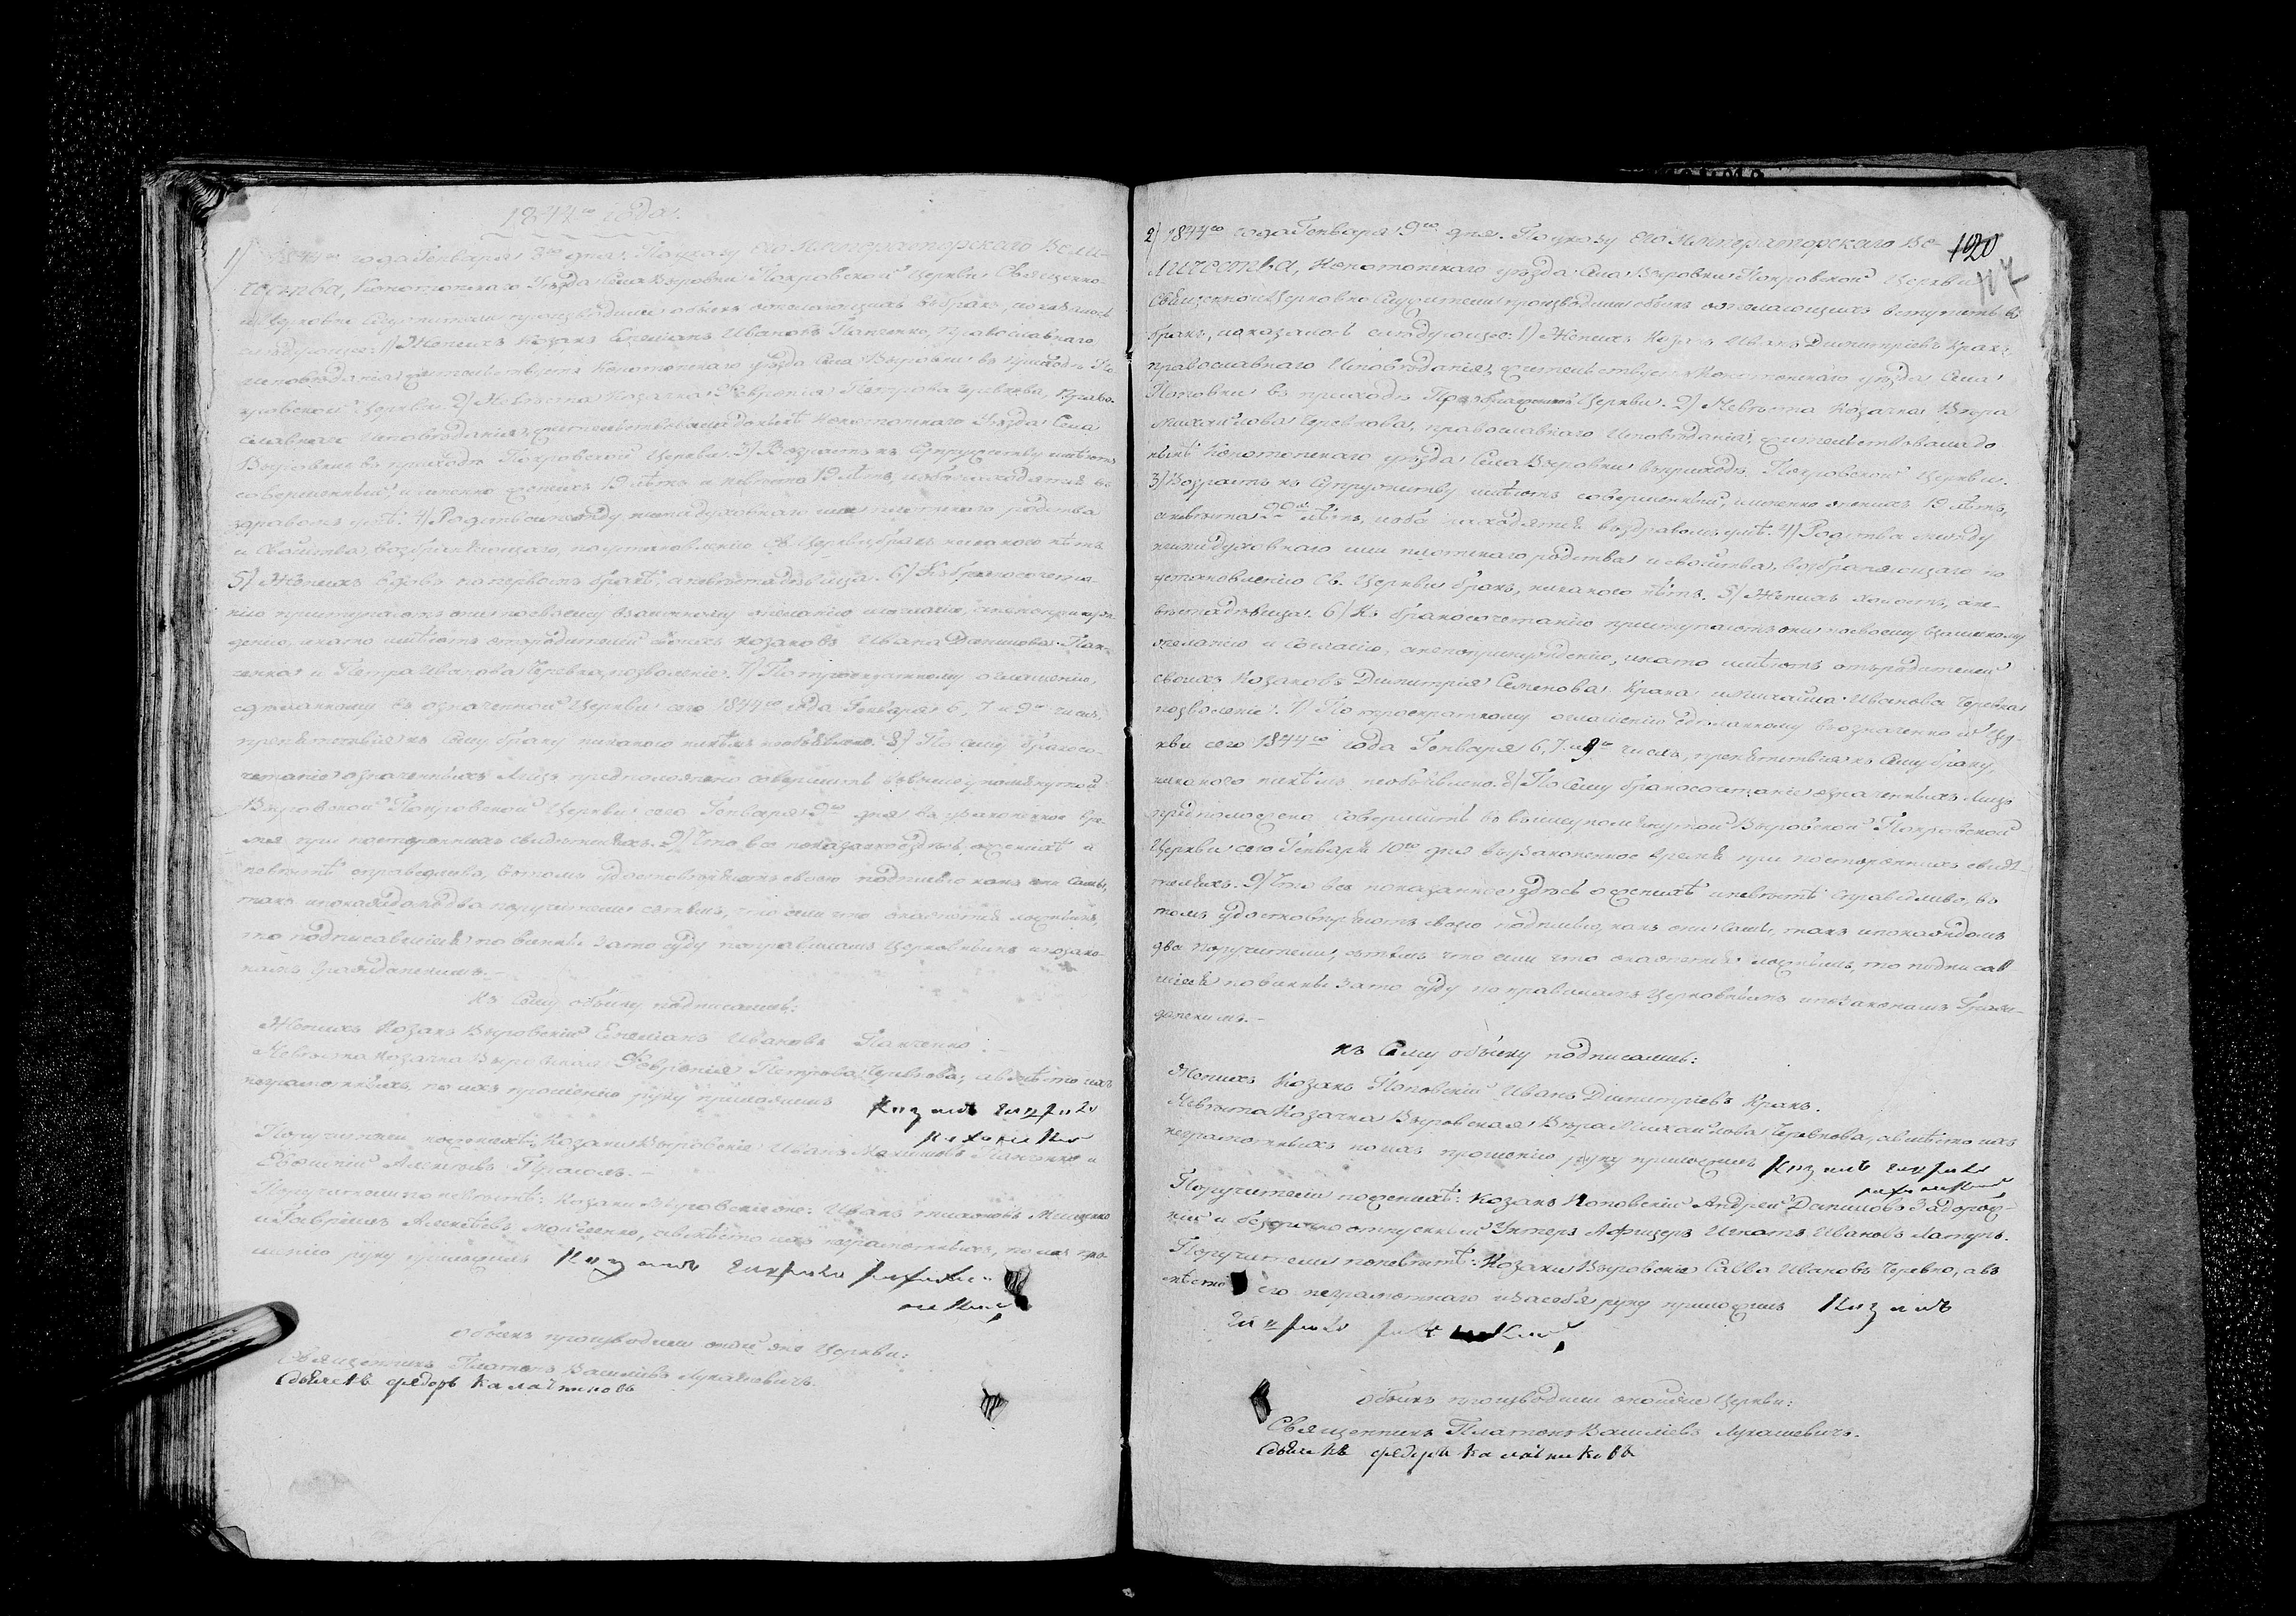 1844го года.
1) 1844го года Генваря 9го дня. По указу Его Императорскаго Вели-
чества, Конотопскаго уѣзда Села Выровки Покровской Церкви Священно
и Церковно Служители производили обыскъ о желающихъ въ бракъ, и оказалось
слѣдующее: 1) Женихъ Козакъ Емеліанъ Ивановъ Панченко, православнаго
исповѣданія, жительствуетъ Конотопскаго уѣзда Села Выровки въ приходѣ По
кровской Церкви. 2) Невѣста Козачка Февронія Петрова Черевкова, право-
славнаго исповѣданія, жительствовала донынѣ Конотопскаго уѣзда Села
Выровки въ приходѣ Покровской Церкви. 3) Возрастъ къ Супружеству имѣютъ
совершенный, и именно женихъ 19 лѣтъ а невѣста 19 лѣтъ, и оба находятся въ
здравомъ умѣ. 4) Родства между ними духовнаго или плотскаго родства
и свойства, возбраняющаго, по установленію Св. Церкви бракъ никакого нѣтъ.
5) Женихъ вдовъ по первомъ бракѣ, а невѣста дѣвица. 6) Къ бракосочета-
нію приступаютъ они по своему взаимному желанію и согласію, а не по принуж
денію, и на то имѣютъ отъ родителей своихъ козаковъ Ивана Пан-
ченка и Петра Иванова Черевка, позволеніе. 7) По троекратному оглашенію,
сдѣланному въ означенной Церкви сего 1844го года Генваря 6, 7 и 9го чиселъ,
препятствія къ Сему браку никакого никѣмъ необъявлено. 8) По сему бракосо-
четаніе означенныхъ Лицъ предположено совершить въ вышеупомянутой
Выровской Покровской Церкви сего Генваря 9го дня въ узаконенное вре-
мя при постороннихъ свидѣтеляхъ. 9) Что все показанное здѣсь о женихѣ и
невѣстѣ справедливо, въ томъ удостовѣряютъ своею подписью какъ они сами,
такъ и по каждомъ два поручителя съ тѣмъ, что если что окажется ложнымъ,
то подписавшіеся повинны за то суду по правиламъ Церковнымъ и по зако-
намъ Гражданскимъ.
Къ Сему обыску подписались:
Женихъ Козакъ Выровскій Емеліанъ Ивановъ Панченко.
Невѣста козачка Выровская Февронія Петрова Черевкова; а вмѣсто ихъ
неграмотныхъ, по ихъ прошенію руку приложилъ Козакъ
Поручители по женихѣ: Козаки Выровскіе Иванъ Панченко и
Алексѣевъ
Поручители по невѣстѣ: Козаки Выровскіе же: Иванъ
и Гавріилъ Алексѣевъ, а вмѣсто ихъ неграмотныхъ, по ихъ про-
шенію руку приложилъ Козакъ
Обыскъ производили оной же Церкви:
Священникъ Платонъ Васильевъ Лукашевичъ.
Дьячекъ Федоръ Калачниковъ
120
117
2) 1844го года Генваря 9го дня. По указу Его Императорскаго Ве-
личества, Конотопскаго уѣзда Села Выровки Покровской Церкви
Священно и Церковно Служители производили обыскъ о желающихъ вступить въ
бракъ, и оказалось слѣдующее: 1) Женихъ Козакъ Иванъ Димитріевъ Кракъ,
православнаго Исповѣданія, жительствуетъ Конотопскаго уѣзда Села
Поповки въ приходѣ Церкви. 2) Невѣста Козачка Вѣра
Михайлова Черевкова, православнаго исповѣданія, жительствовала до
нынѣ Конотопскаго уѣзда Села Выровки въ приходѣ Покровской Церкви.
3) Возрастъ къ Супружеству имѣютъ совершенный, и именно женихъ 19 лѣтъ,
а невѣста 20 лѣтъ, и оба находятся въ здравомъ умѣ. 4) Родства между
ними духовнаго или плотскаго родства и свойства, возбраняющаго по
установленію Св. Церкви бракъ, никакого нѣтъ. 5) Женихъ холостъ, а не-
вѣста дѣвица. 6) Къ бракосочетанію приступаютъ они по своему взаимному
желанію и согласію, а не по принужденію, и на то имѣютъ отъ родителей
своихъ Козаковъ Димитрія Семенова Крака и Михайла Иванова Черевка
позволеніе. 7) По троекратному оглашенію сдѣланному въ означенной Цер-
кви сего 1844го года Генваря 6, 7 и 9го чиселъ, препятствія къ Сему браку,
никакого никѣмъ необъявлено. 8) По Сему бракосочетаніе означенныхъ Лицъ
предположено совершить въ вышеупомянутой Выровской Покровской
Церкви сего Генваря 10го дня въ узаконенное время при постороннихъ свидѣ-
теляхъ. 9) Что все показанное здѣсь о женихѣ и невѣстѣ справедливо, въ
томъ удостовѣряютъ своею подписью, какъ они сами, такъ и по каждомъ
два поручителя, съ тѣмъ что если что окажется ложнымъ, то подписав-
шіеся повинны за то суду по правиламъ Церковнымъ и по законамъ Граж-
данскимъ.
Къ Сему обыску подписались:
Женихъ Козакъ Поповскій Иванъ Димитріевъ Кракъ.
Невѣста Козачка Выровская Вѣра Михайлова Черевкова, а вмѣсто ихъ
неграмотныхъ по ихъ прошенію руку приложилъ Козакъ
Поручители по женихѣ: Козакъ Поповскій Андрей Даниловъ Задорож-
ній и безсрочно отпускный Унтеръ Афицеръ Игнатъ Ивановъ Латунъ.
Поручители по невѣстѣ: Козаки Выровскіе Савва Ивановъ Черевко, а в
мѣсто его неграмотнаго и за себя руку приложилъ Козакъ
Обыскъ производили оной же Церкви:
Священникъ Платонъ Васильевъ Лукашевичъ.
Дьячекъ Федоръ Калачниковъ